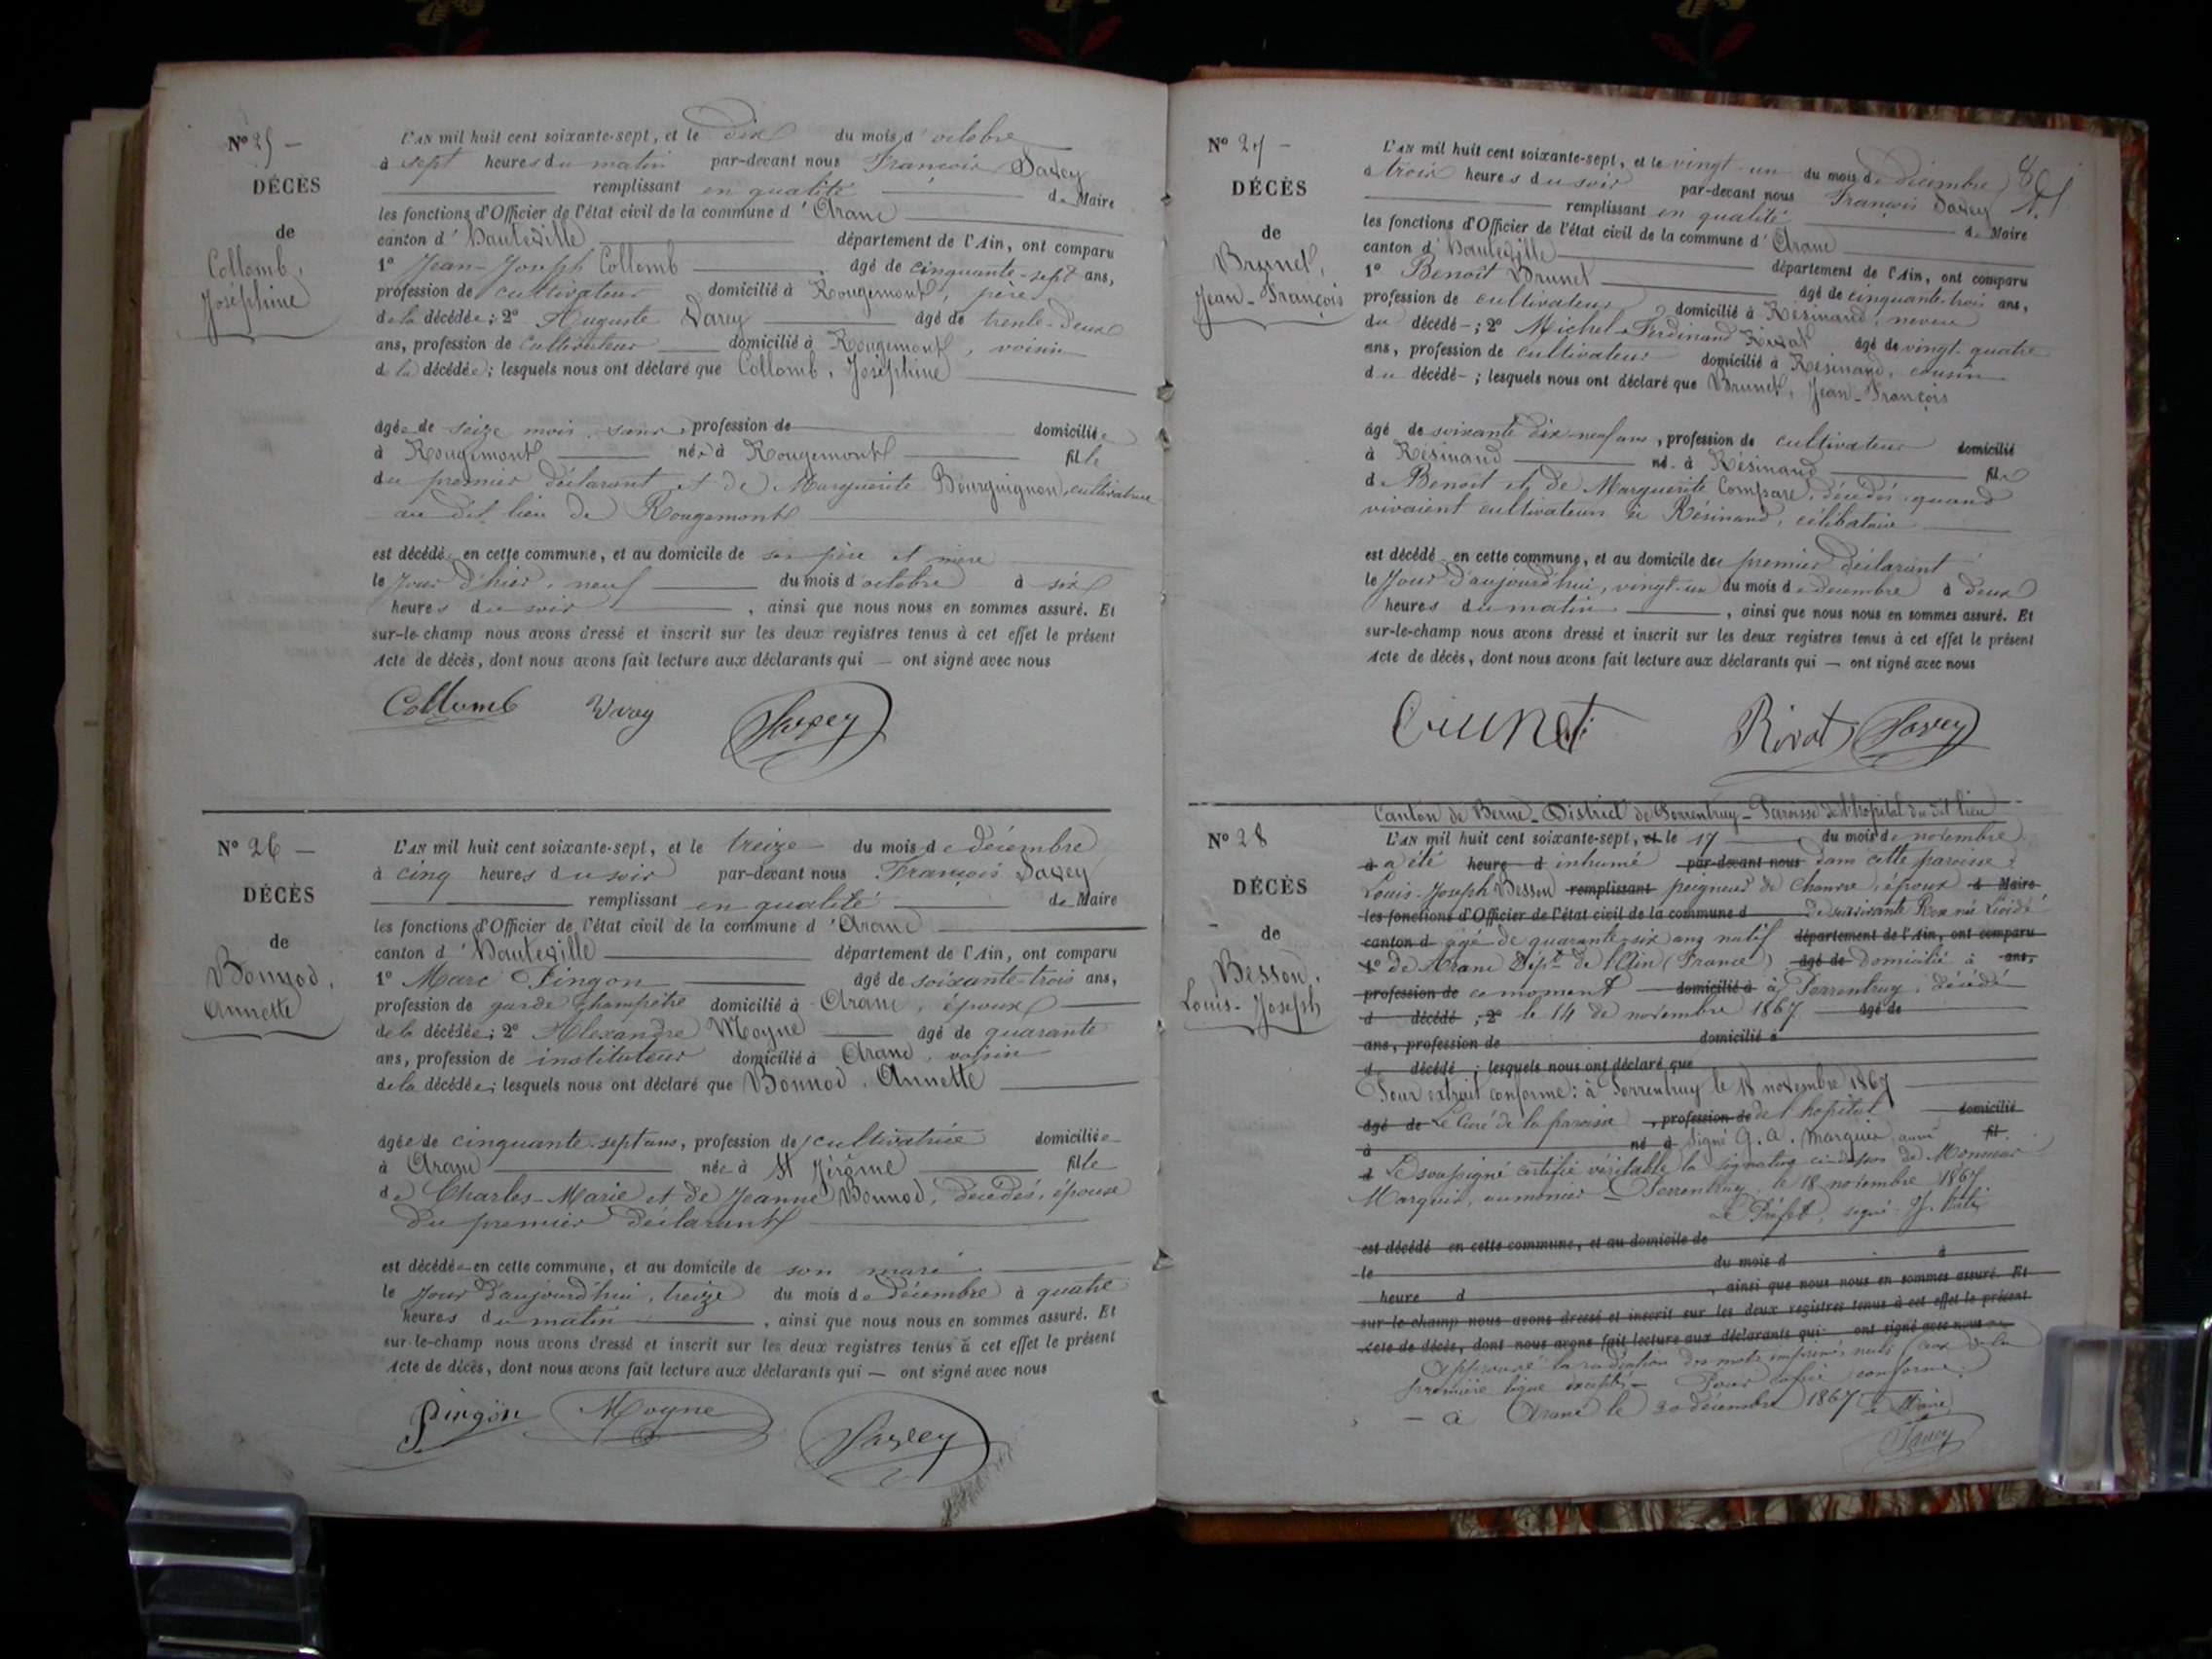 N° 25 —
DÉCÈS
de
Collomb,
Joséphine
L'AN mil huit cent soixante-sept, et le dix du mois d'octobre
à sept heures du matin par-devant nous François Savey
remplissant en qualité de Maire
les fonctions d'Officier de l'état civil de la commune d'Aranc
canton d'Hauteville département de l'Ain, ont comparu
1° Jean-Joseph Collomb âgé de cinquante-sept ans,
profession de cultivateur domicilié à Rougemont, père
de la décédée; 2° Auguste Varey âgé de trente-deux
ans, profession de cultivateur domicilié à Rougemont, voisin
de la décédée; lesquels nous ont déclaré que Collomb, Joséphine
âgée de seize mois, sans profession de domiciliée
à Rougemont née à Rougemont fille
du premier déclarant et de Marguerite Bourguignon, cultivateurs
au dit lieu de Rougemont
est décédée en cette commune, et au domicile de ses père et mère
le jour d'hier, neuf du mois d'octobre à six
heures du soir, ainsi que nous nous en sommes assuré. Et
sur-le-champ nous avons dressé et inscrit sur les deux registres tenus à cet effet le présent
Acte de décès, dont nous avons fait lecture aux déclarants qui — ont signé avec nous
Collomb Varey Savey
N° 26 —
DÉCÈS
de
Bonnod,
Annette
L'AN mil huit cent soixante-sept, et le treize du mois de décembre
à cinq heures du soir par-devant nous François Savey
remplissant en qualité de Maire
les fonctions d'Officier de l'état civil de la commune d'Aranc
canton d'Hauteville département de l'Ain, ont comparu
1° Marc Pingon âgé de soixante-trois ans,
profession de garde champêtre domicilié à Aranc, époux
de la décédée; 2° Alexandre Moyne âgé de quarante
ans, profession de instituteur domicilié à Aranc, voisin
de la décédée; lesquels nous ont déclaré que Bonnod, Annette
âgée de cinquante-sept ans, profession de cultivatrice domiciliée
à Aranc née à St Jérôme fille
de Charles-Marie et de Jeanne Bonnod, décédés, épouse
du premier déclarant
est décédée en cette commune, et au domicile de son mari
le jour d'aujourd'hui, treize du mois de décembre à quatre
heures du matin, ainsi que nous nous en sommes assuré. Et
sur-le-champ nous avons dressé et inscrit sur les deux registres tenus à cet effet le présent
Acte de décès, dont nous avons fait lecture aux déclarants qui — ont signé avec nous
Pingon Moyne Savey
N° 27 —
DÉCÈS
de
Brunet,
Jean-François
L'AN mil huit cent soixante-sept, et le vingt-un du mois de décembre
à trois heures du soir par-devant nous François Savey
remplissant en qualité de Maire
les fonctions d'Officier de l'état civil de la commune d'Aranc
canton d'Hauteville département de l'Ain, ont comparu
1° Benoît Brunet âgé de cinquante-trois ans,
profession de cultivateur domicilié à Résinand, neveu
du décédé-; 2° Michel-Ferdinand Rivat âgé de vingt-quatre
ans, profession de cultivateur domicilié à Résinand, cousin
du décédé-; lesquels nous ont déclaré que Brunet, Jean-François
âgé de soixante dix-neuf ans, profession de cultivateur domicilié
à Résinand né à Résinand fils
de Benoît et de Marguerite Compare, décédés quand
vivaient cultivateurs à Résinand, célibataire
est décédé en cette commune, et au domicile du premier déclarant
le jour d'aujourd'hui, vingt-un du mois de décembre à deux
heures du matin, ainsi que nous nous en sommes assuré. Et
sur-le-champ nous avons dressé et inscrit sur les deux registres tenus à cet effet le présent
Acte de décès, dont nous avons fait lecture aux déclarants qui — ont signé avec nous
Brunet Rivat Savey
N° 28
DÉCÈS
de
Besson,
Louis-Joseph
Canton de Berne - District de Porrentruy - Paroisse de l'hopital du dit lieu
L'AN mil huit cent soixante-sept, et le 17 du mois de novembre
à a été heure d inhumé par-devant nous dans cette paroisse
Louis-Joseph Besson remplissant peigneur de chanvre, époux d Maire
les fonctions d'Officier de l'état civil de la commune d de survivante née
canton d âgé de quarante-six ans natif département de l'Ain, ont comparu
1° de Aranc Dépt de l'Ain (France) âgé de Domicilié à ans,
profession de ce moment domicilié à à Porrentruy, décédé
d décédé ; 2° le 14 de novembre 1867 âgé de
ans, profession de domicilié à
d décédé ; lesquels nous ont déclaré que
Pour extrait conforme: à Porrentruy le 18 novembre 1867
âgé de Le Curé de la paroisse, profession de de l'hopital domicilié
à né à signé fil
d Le soussigné certifie véritable la signature ci-dessus de Monsieur
Marquis, aumonier - Porrentruy, le 18 novembre 1867.
Le Préfet, signé:
est décédé en cette commune, et au domicile de
le du mois d à
heure d , ainsi que nous nous en sommes assuré. Et
sur-le-champ nous avons dressé et inscrit sur les deux registres tenus à cet effet le présent
Acte de décès, dont nous avons fait lecture aux déclarants qui ont signé avec nous
Approuvé la radiation des mots imprimés nuls (ceux de la
première ligne exceptés - Pour copie conforme
- à Aranc le 20 décembre 1867 Le Maire
Savey